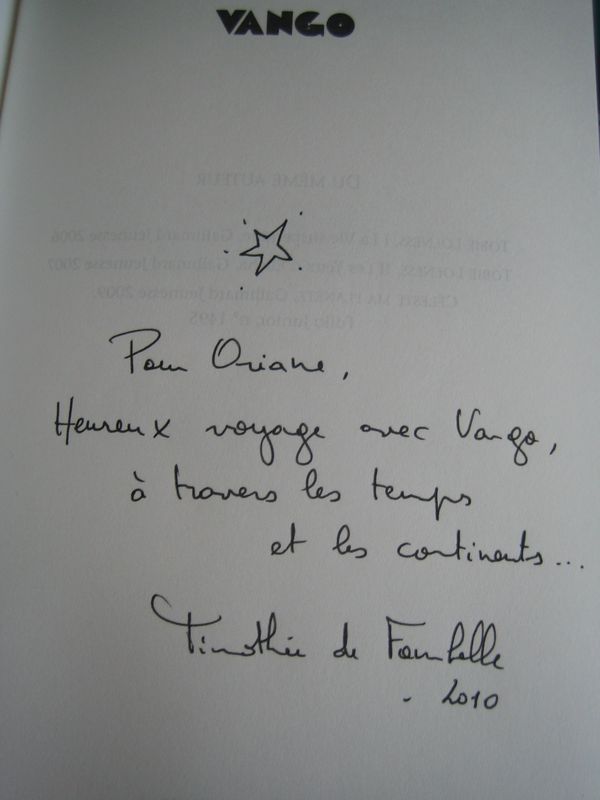 VANGO
DU MÊME AUTEUR
TOBIE LOLNESS, I La Vie suspendue, Gallimard Jeunesse 2006
TOBIE LOLNESS, II Les Yeux d'Elisha, Gallimard Jeunesse 2007
CÉLESTE MA PLANÈTE, Gallimard Jeunesse 2009,
folio junior, n° 1495
Pour Oriane,
Heureux voyage avec Vango,
à travers les temps
et les continents...
Timothée de Fombelle
- 2010